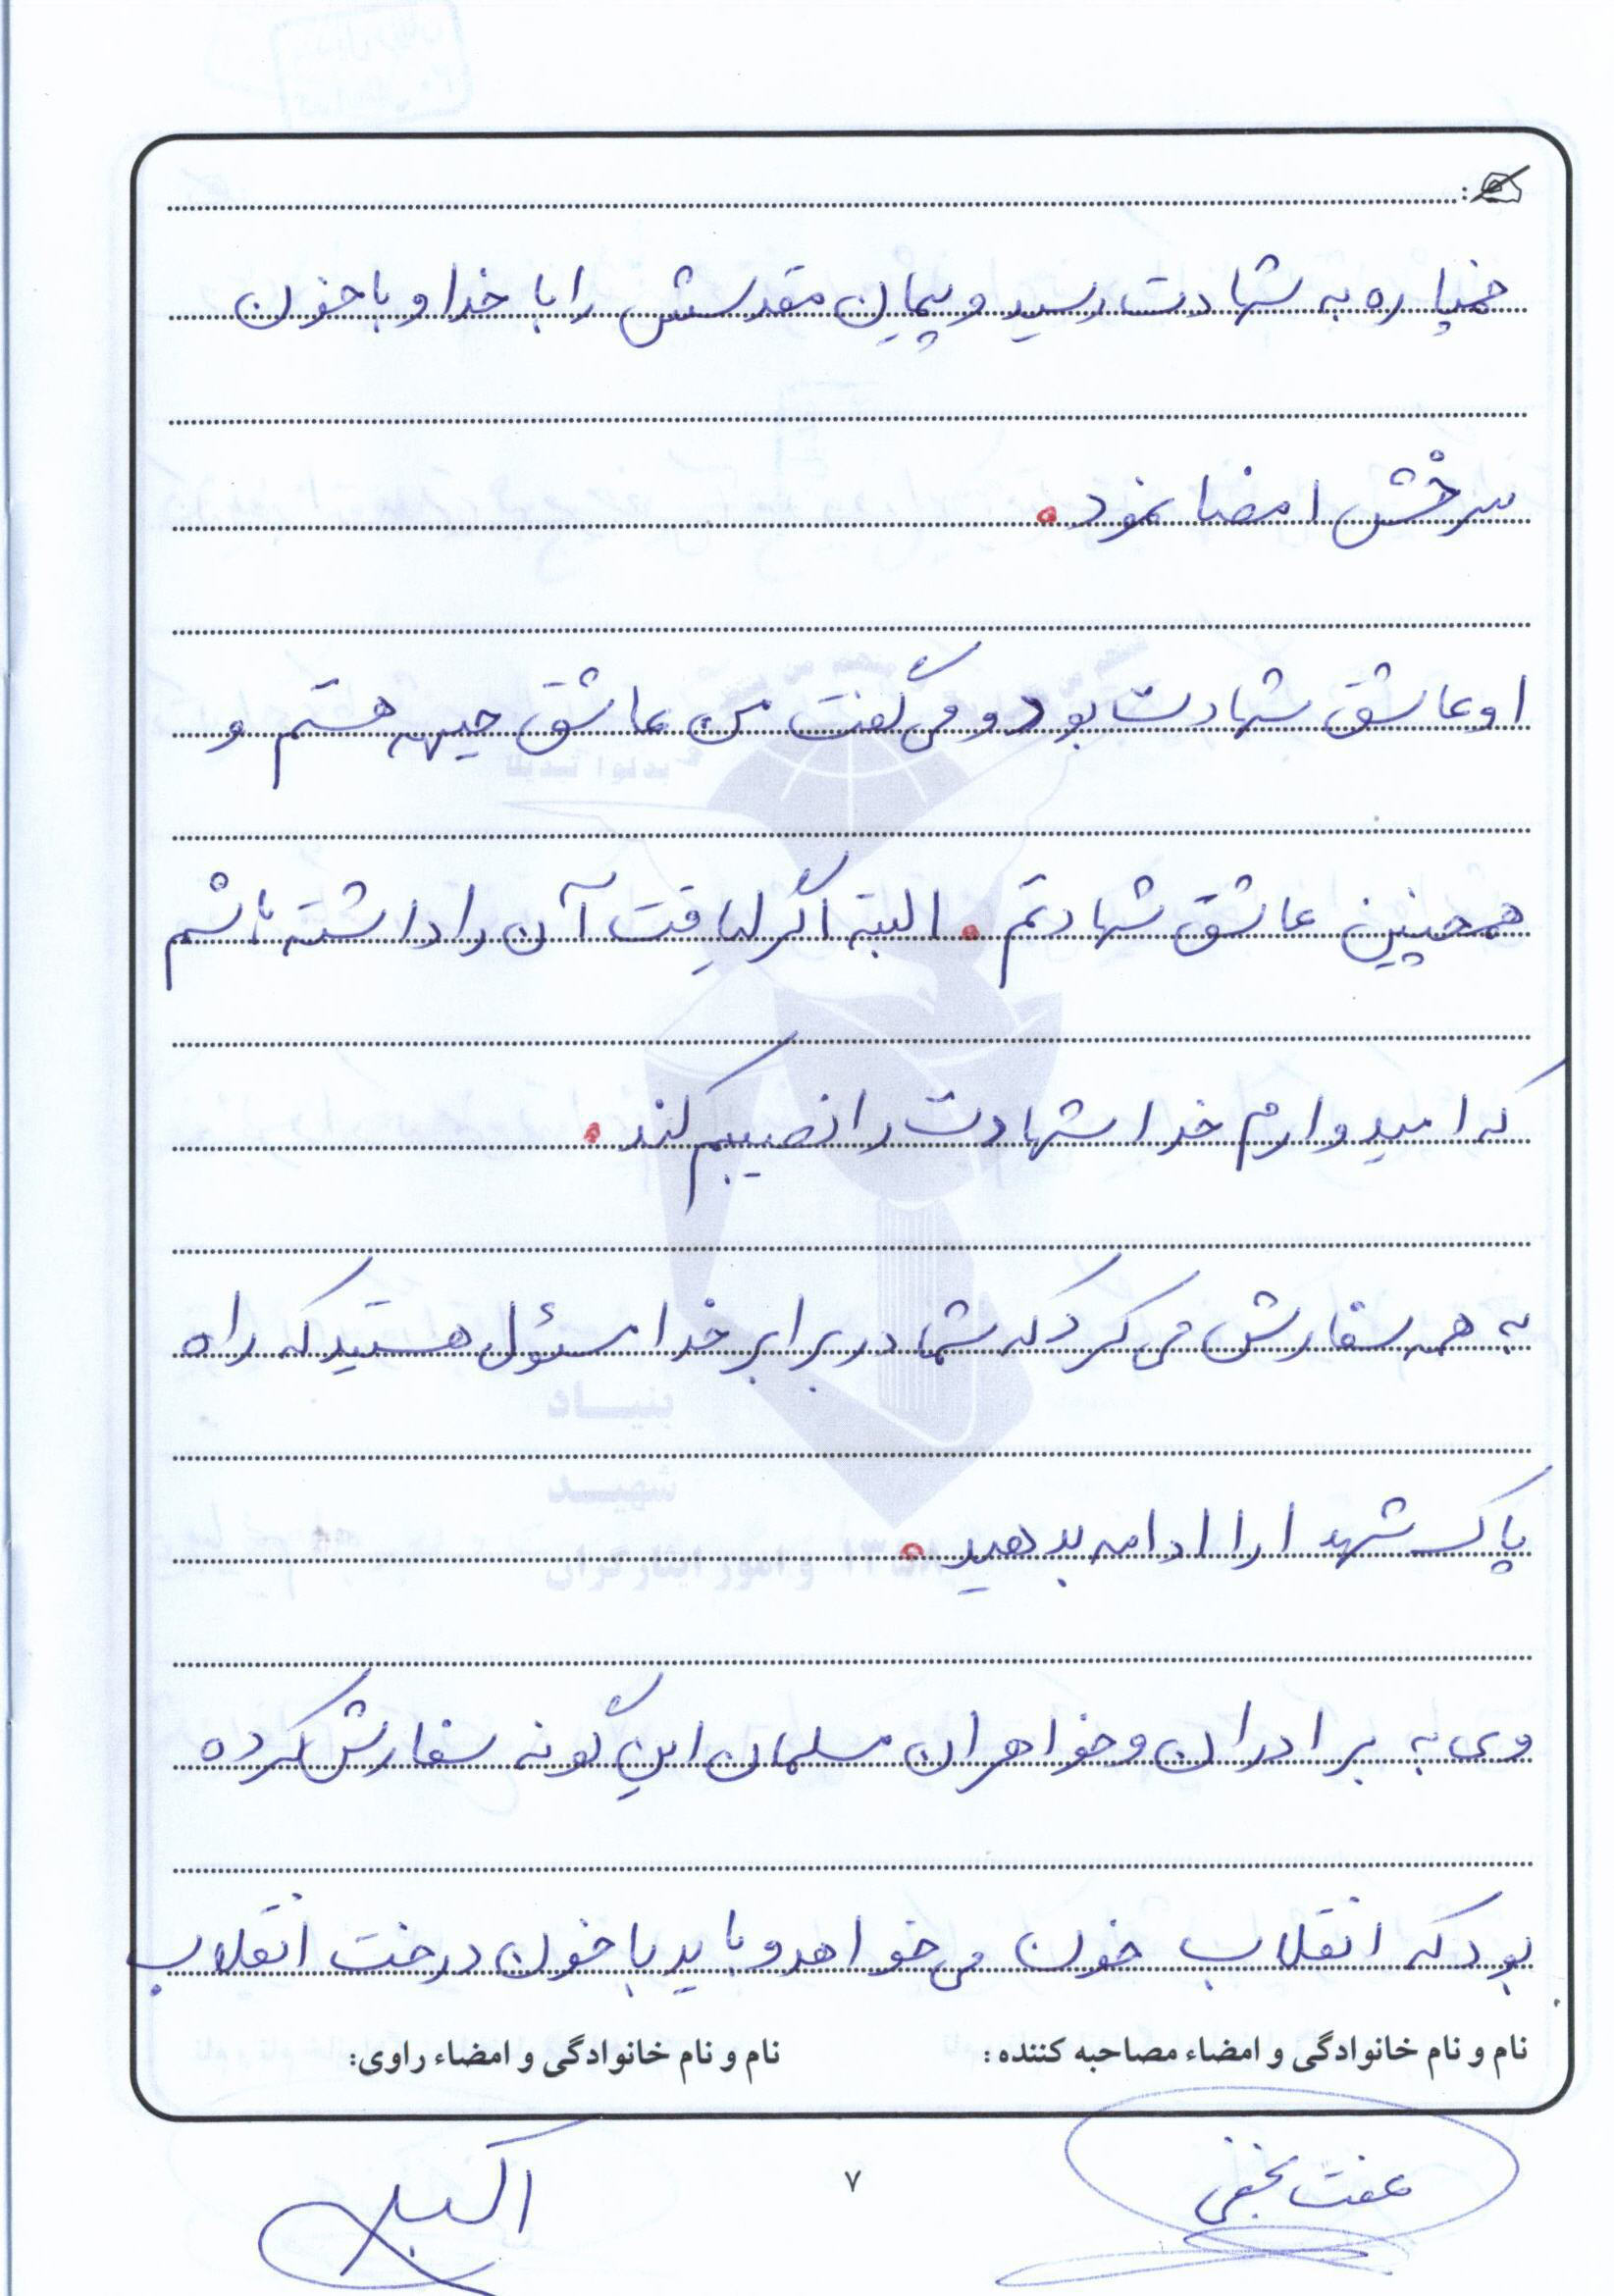 خمپاره به شهادت رسید و پیمان مقدسش را با خدا و با خون
سرخش امضا نمود.
او عاشق شهادت بود و می گفت من عاشق جبهه هستم و
همچنین عاشق شهادتم. البته اگر لیاقت آن را داشته باشم
که امیدوارم خدا شهادت را نصیبم کند.
به همه سفارش می کرد که شما در برابر خدا مسئول هستید که راه
پاک شهدا را ادامه بدهید.
وی به برادران و خواهران مسلمان این گونه سفارش کرده
بود که انقلاب خون می خواهد و باید با خون درخت انقلاب
نام و نام خانوادگی و امضاء مصاحبه کننده:
نام و نام خانوادگی و امضاء راوی:
عفت نجفی
۷